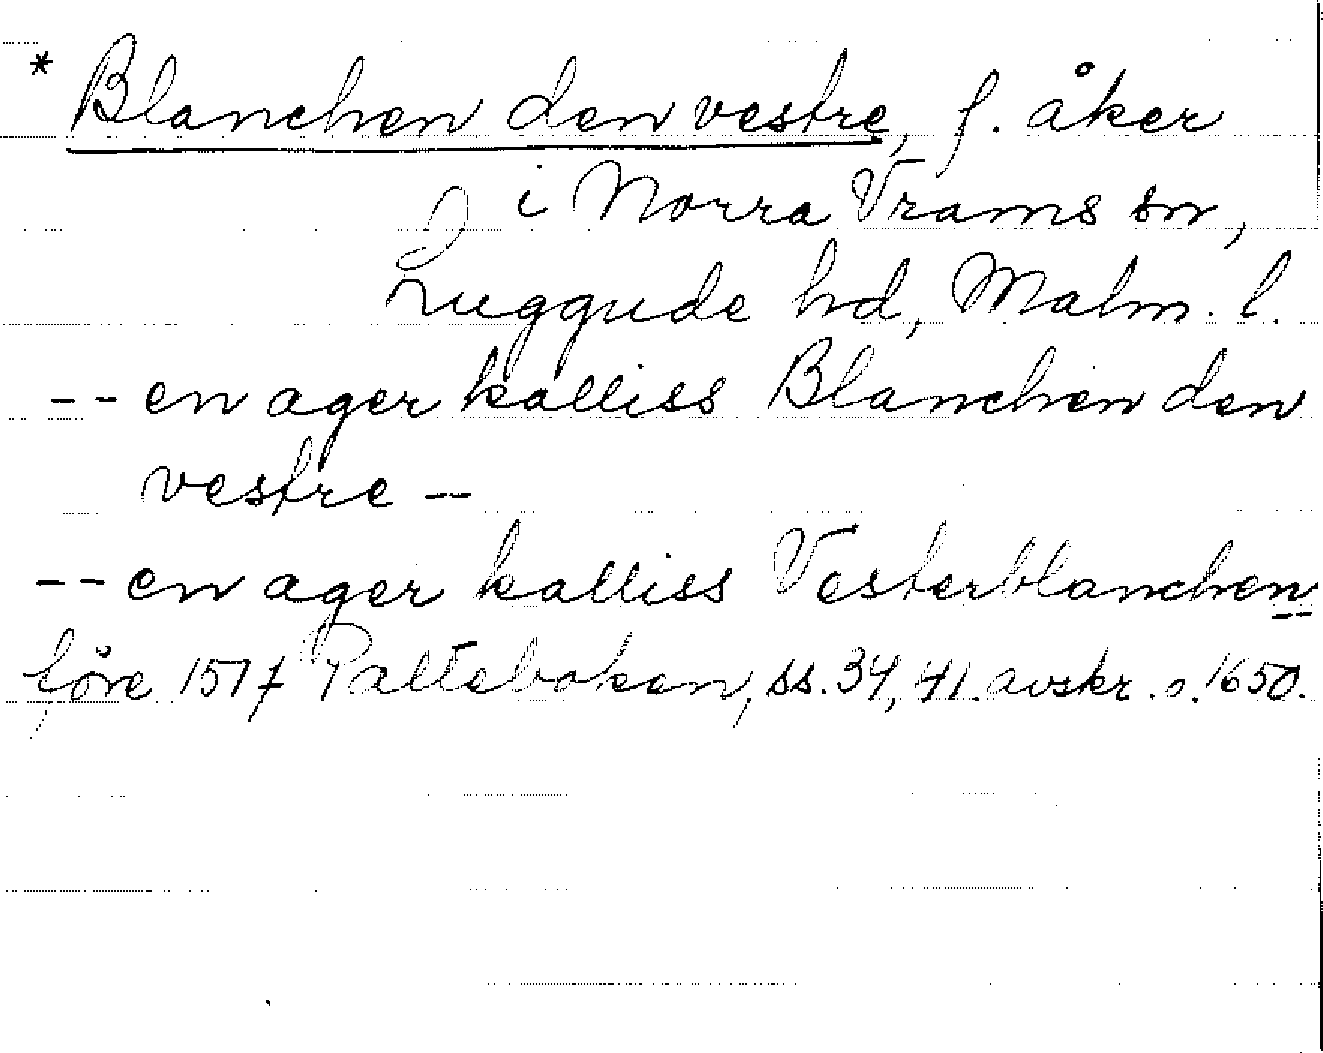 * Blanchen den vestre, f. åker
i Norra Vrams sn,
Luggude hd, Malm. l.
-- en ager kalliss Blanchen den
vestre --
-- en ager kalliss Vesterblanchen
före 1577 Palteboken, ss. 34, 41. avskr. o. 1650.